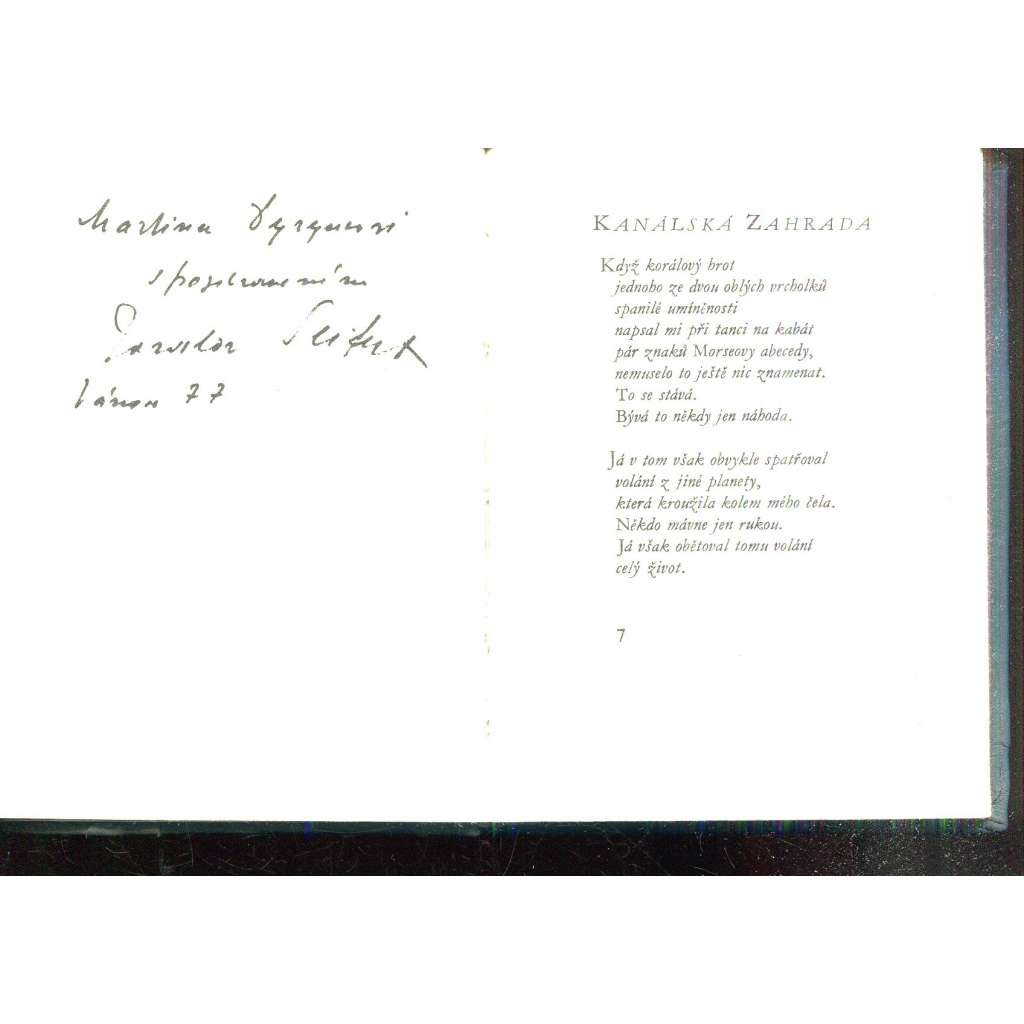 Martinu
s pozdravením
Jaroslav Seifert
Vánoce 77
KANÁLSKÁ ZAHRADA
Když korálový hrot
jednoho ze dvou oblých vrcholků
spanilé umíněnosti
napsal mi při tanci na kabát
pár znaků Morseovy abecedy,
nemuselo to ještě nic znamenat.
To se stává.
Bývá to někdy jen náhoda.
Já v tom však obvykle spatřoval
volání z jiné planety,
která kroužila kolem mého čela.
Někdo mávne jen rukou.
Já však obětoval tomu volání
celý život.
7